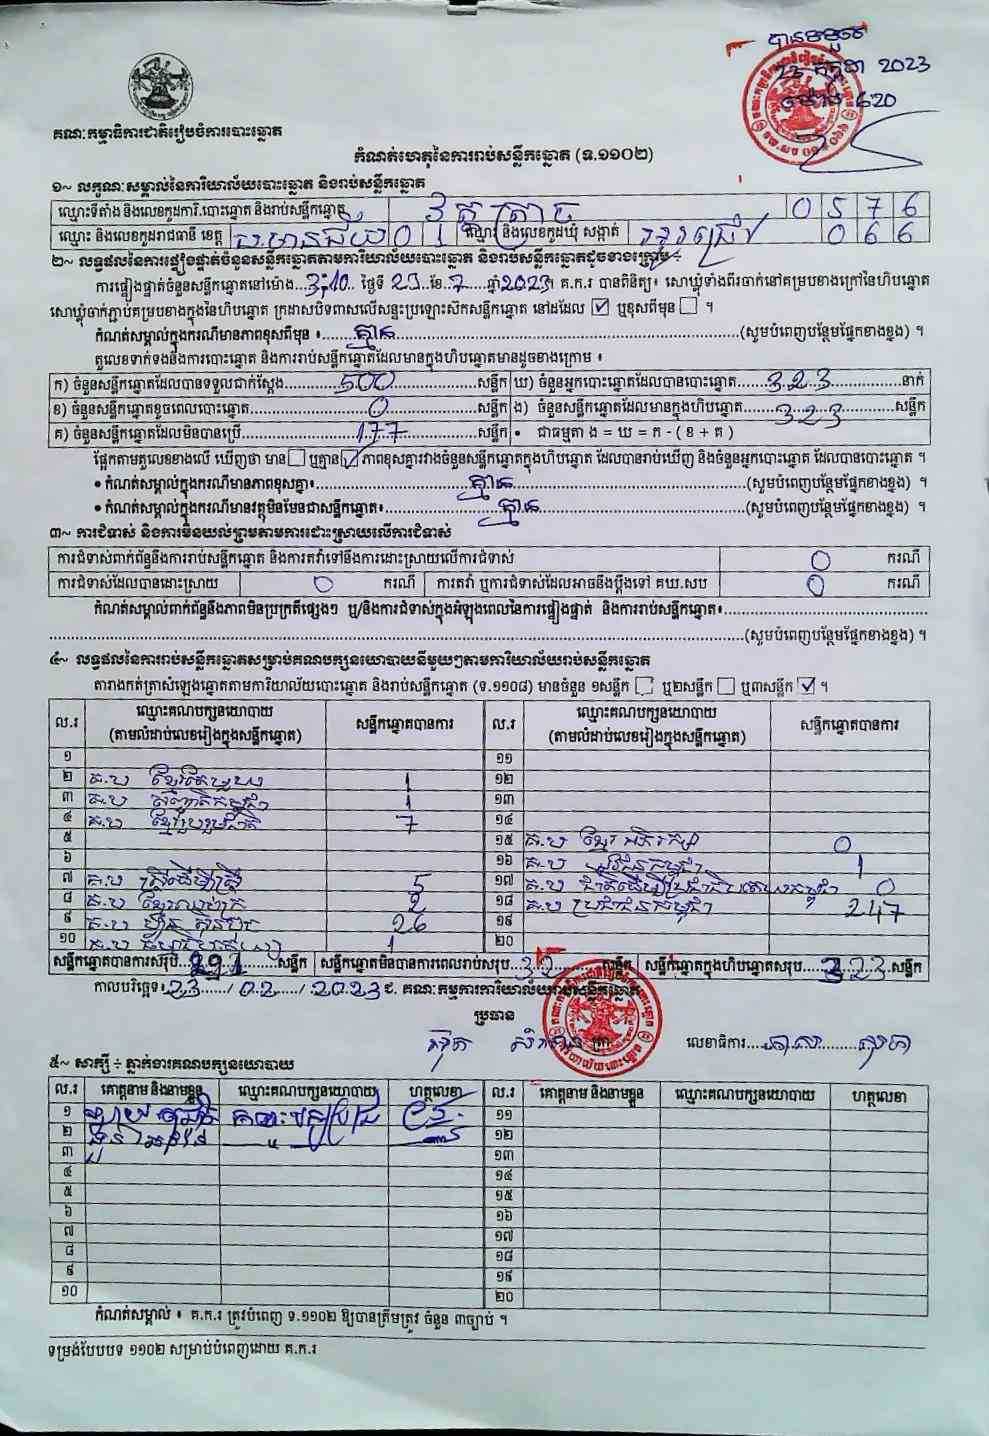 បានទទួល
23 កក្កដា 2023
គណៈកម្មាធិការជាតិរៀបចំការបោះឆ្នោត
កំណត់ហេតុនៃការរាប់សន្លឹកឆ្នោត (ទ.១១០២)
១~ លក្ខណៈសម្គាល់នៃការិយាល័យបោះឆ្នោត និងរាប់សន្លឹកឆ្នោត
ឈ្មោះទីតាំង និងលេខកូដការិ.បោះឆ្នោត និងរាប់សន្លឹកឆ្នោត 0 5 7 6
ឈ្មោះ និងលេខកូដរាជធានី ខេត្ត ប.មានជ័យ 0 1 ឈ្មោះ និងលេខកូដឃុំ សង្កាត់ 0 6 6
២~ លទ្ធផលនៃការផ្ទៀងផ្ទាត់ចំនួនសន្លឹកឆ្នោតតាមការិយាល័យបោះឆ្នោត និងរាប់សន្លឹកឆ្នោតដូចខាងក្រោម ÷
ការផ្ទៀងផ្ទាត់ចំនួនសន្លឹកឆ្នោតនៅម៉ោង...3:10.. ថ្ងៃទី 23 .ខែ.7......ឆ្នាំ2023។ គ.ក.រ បានពិនិត្យ៖ សោឃ្លុំទាំងពីរចាក់នៅគម្របខាងក្រៅនៃហិបឆ្នោត
សោឃ្លុំចាក់ភ្ជាប់គម្របខាងក្នុងនៃហិបឆ្នោត ក្រដាសបិទពាសលើសន្ទះប្រឡោះស៊កសន្លឹកឆ្នោត នៅដដែល ☑ ឬខុសពីមុន ☐ ។
កំណត់សម្គាល់ក្នុងករណីមានភាពខុសពីមុន ៖ គ្មាន (សូមបំពេញបន្ថែមផ្នែកខាងខ្នង) ។
តួលេខទាក់ទងនឹងការបោះឆ្នោត និងការរាប់សន្លឹកឆ្នោតដែលមានក្នុងហិបឆ្នោតមានដូចខាងក្រោម ៖
ក) ចំនួនសន្លឹកឆ្នោតដែលបានទទួលជាក់ស្តែង 500 សន្លឹក ឃ) ចំនួនអ្នកបោះឆ្នោតដែលបានបោះឆ្នោត 323 នាក់
ខ) ចំនួនសន្លឹកឆ្នោតខូចពេលបោះឆ្នោត 0 សន្លឹក ង) ចំនួនសន្លឹកឆ្នោតដែលមានក្នុងហិបឆ្នោត 323 សន្លឹក
គ) ចំនួនសន្លឹកឆ្នោតដែលមិនបានប្រើ 177 សន្លឹក • ជាធម្មតា ង = ឃ = ក - ( ខ + គ )
ផ្អែកតាមតួលេខខាងលើ ឃើញថា មាន ☐ ឬគ្មាន ☑ ភាពខុសគ្នារវាងចំនួនសន្លឹកឆ្នោតក្នុងហិបឆ្នោត ដែលបានរាប់ឃើញ និងចំនួនអ្នកបោះឆ្នោត ដែលបានបោះឆ្នោត ។
• កំណត់សម្គាល់ក្នុងករណីមានភាពខុសគ្នា៖ គ្មាន (សូមបំពេញបន្ថែមផ្នែកខាងខ្នង) ។
• កំណត់សម្គាល់ក្នុងករណីមានវត្ថុមិនមែនជាសន្លឹកឆ្នោត៖ គ្មាន (សូមបំពេញបន្ថែមផ្នែកខាងខ្នង) ។
៣~ ការជំទាស់ និងការមិនយល់ព្រមតាមការដោះស្រាយលើការជំទាស់
ការជំទាស់ពាក់ព័ន្ធនឹងការរាប់សន្លឹកឆ្នោត និងការតវ៉ាទៅនឹងការដោះស្រាយលើការជំទាស់ 0 ករណី
ការជំទាស់ដែលបានដោះស្រាយ 0 ករណី ការតវ៉ា ឬការជំទាស់ដែលអាចនឹងប្តឹងទៅ គឃ.សប 0 ករណី
កំណត់សម្គាល់ពាក់ព័ន្ធនឹងភាពមិនប្រក្រតីផ្សេងៗ ឬ/និងការជំទាស់ក្នុងអំឡុងពេលនៃការផ្ទៀងផ្ទាត់ និងការរាប់សន្លឹកឆ្នោត៖
(សូមបំពេញបន្ថែមផ្នែកខាងខ្នង) ។
៤~ លទ្ធផលនៃការរាប់សន្លឹកឆ្នោតសម្រាប់គណបក្សនយោបាយនីមួយៗតាមការិយាល័យរាប់សន្លឹកឆ្នោត
តារាងកត់ត្រាសំឡេងឆ្នោតតាមការិយាល័យបោះឆ្នោត និងរាប់សន្លឹកឆ្នោត (ទ.១១០៨) មានចំនួន ១សន្លឹក ☐ ឬ២សន្លឹក ☐ ឬ៣សន្លឹក ☑ ។
ល.រ ឈ្មោះគណបក្សនយោបាយ (តាមលំដាប់លេខរៀងក្នុងសន្លឹកឆ្នោត) សន្លឹកឆ្នោតបានការ ល.រ ឈ្មោះគណបក្សនយោបាយ (តាមលំដាប់លេខរៀងក្នុងសន្លឹកឆ្នោត) សន្លឹកឆ្នោតបានការ
១ ១១
២ គ.ប ខ្មែរតែមួយ 1 ១២
៣ គ.ប 1 ១៣
៤ គ.ប ខ្មែររួបរួមជាតិ 7 ១៤
៥ ១៥ គ.ប ខ្មែរ អភិរក្ស 0
៦ ១៦ គ.ប 1
៧ គ.ប ស្ត្រីដើម្បីស្ត្រី 5 ១៧ គ.ប 0
៨ គ.ប 2 ១៨ គ.ប ប្រជាជនកម្ពុជា 247
៩ គ.ប ហ្វ៊ុនស៊ិនប៉ិច 26 ១៩
១០ គ.ប 1 ២០
សន្លឹកឆ្នោតបានការសរុប 291 សន្លឹក សន្លឹកឆ្នោតមិនបានការពេលរាប់សរុប 32 សន្លឹក សន្លឹកឆ្នោតក្នុងហិបឆ្នោតសរុប 323 សន្លឹក
កាលបរិច្ឆេទ៖ 23 / 07 / 2023 ជ. គណៈកម្មការការិយាល័យរាប់សន្លឹកឆ្នោត
ប្រធាន
លេខាធិការ
៥~ សាក្សី ÷ ភ្នាក់ងារគណបក្សនយោបាយ
ល.រ គោត្តនាម និងនាមខ្លួន ឈ្មោះគណបក្សនយោបាយ ហត្ថលេខា ល.រ គោត្តនាម និងនាមខ្លួន ឈ្មោះគណបក្សនយោបាយ ហត្ថលេខា
១ ១១
២ ១២
៣ ១៣
៤ ១៤
៥ ១៥
៦ ១៦
៧ ១៧
៨ ១៨
៩ ១៩
១០ ២០
កំណត់សម្គាល់ ៖ គ.ក.រ ត្រូវបំពេញ ទ.១១០២ ឱ្យបានត្រឹមត្រូវ ចំនួន ៣ច្បាប់ ។
ទម្រង់បែបបទ ១១០២ សម្រាប់បំពេញដោយ គ.ក.រ